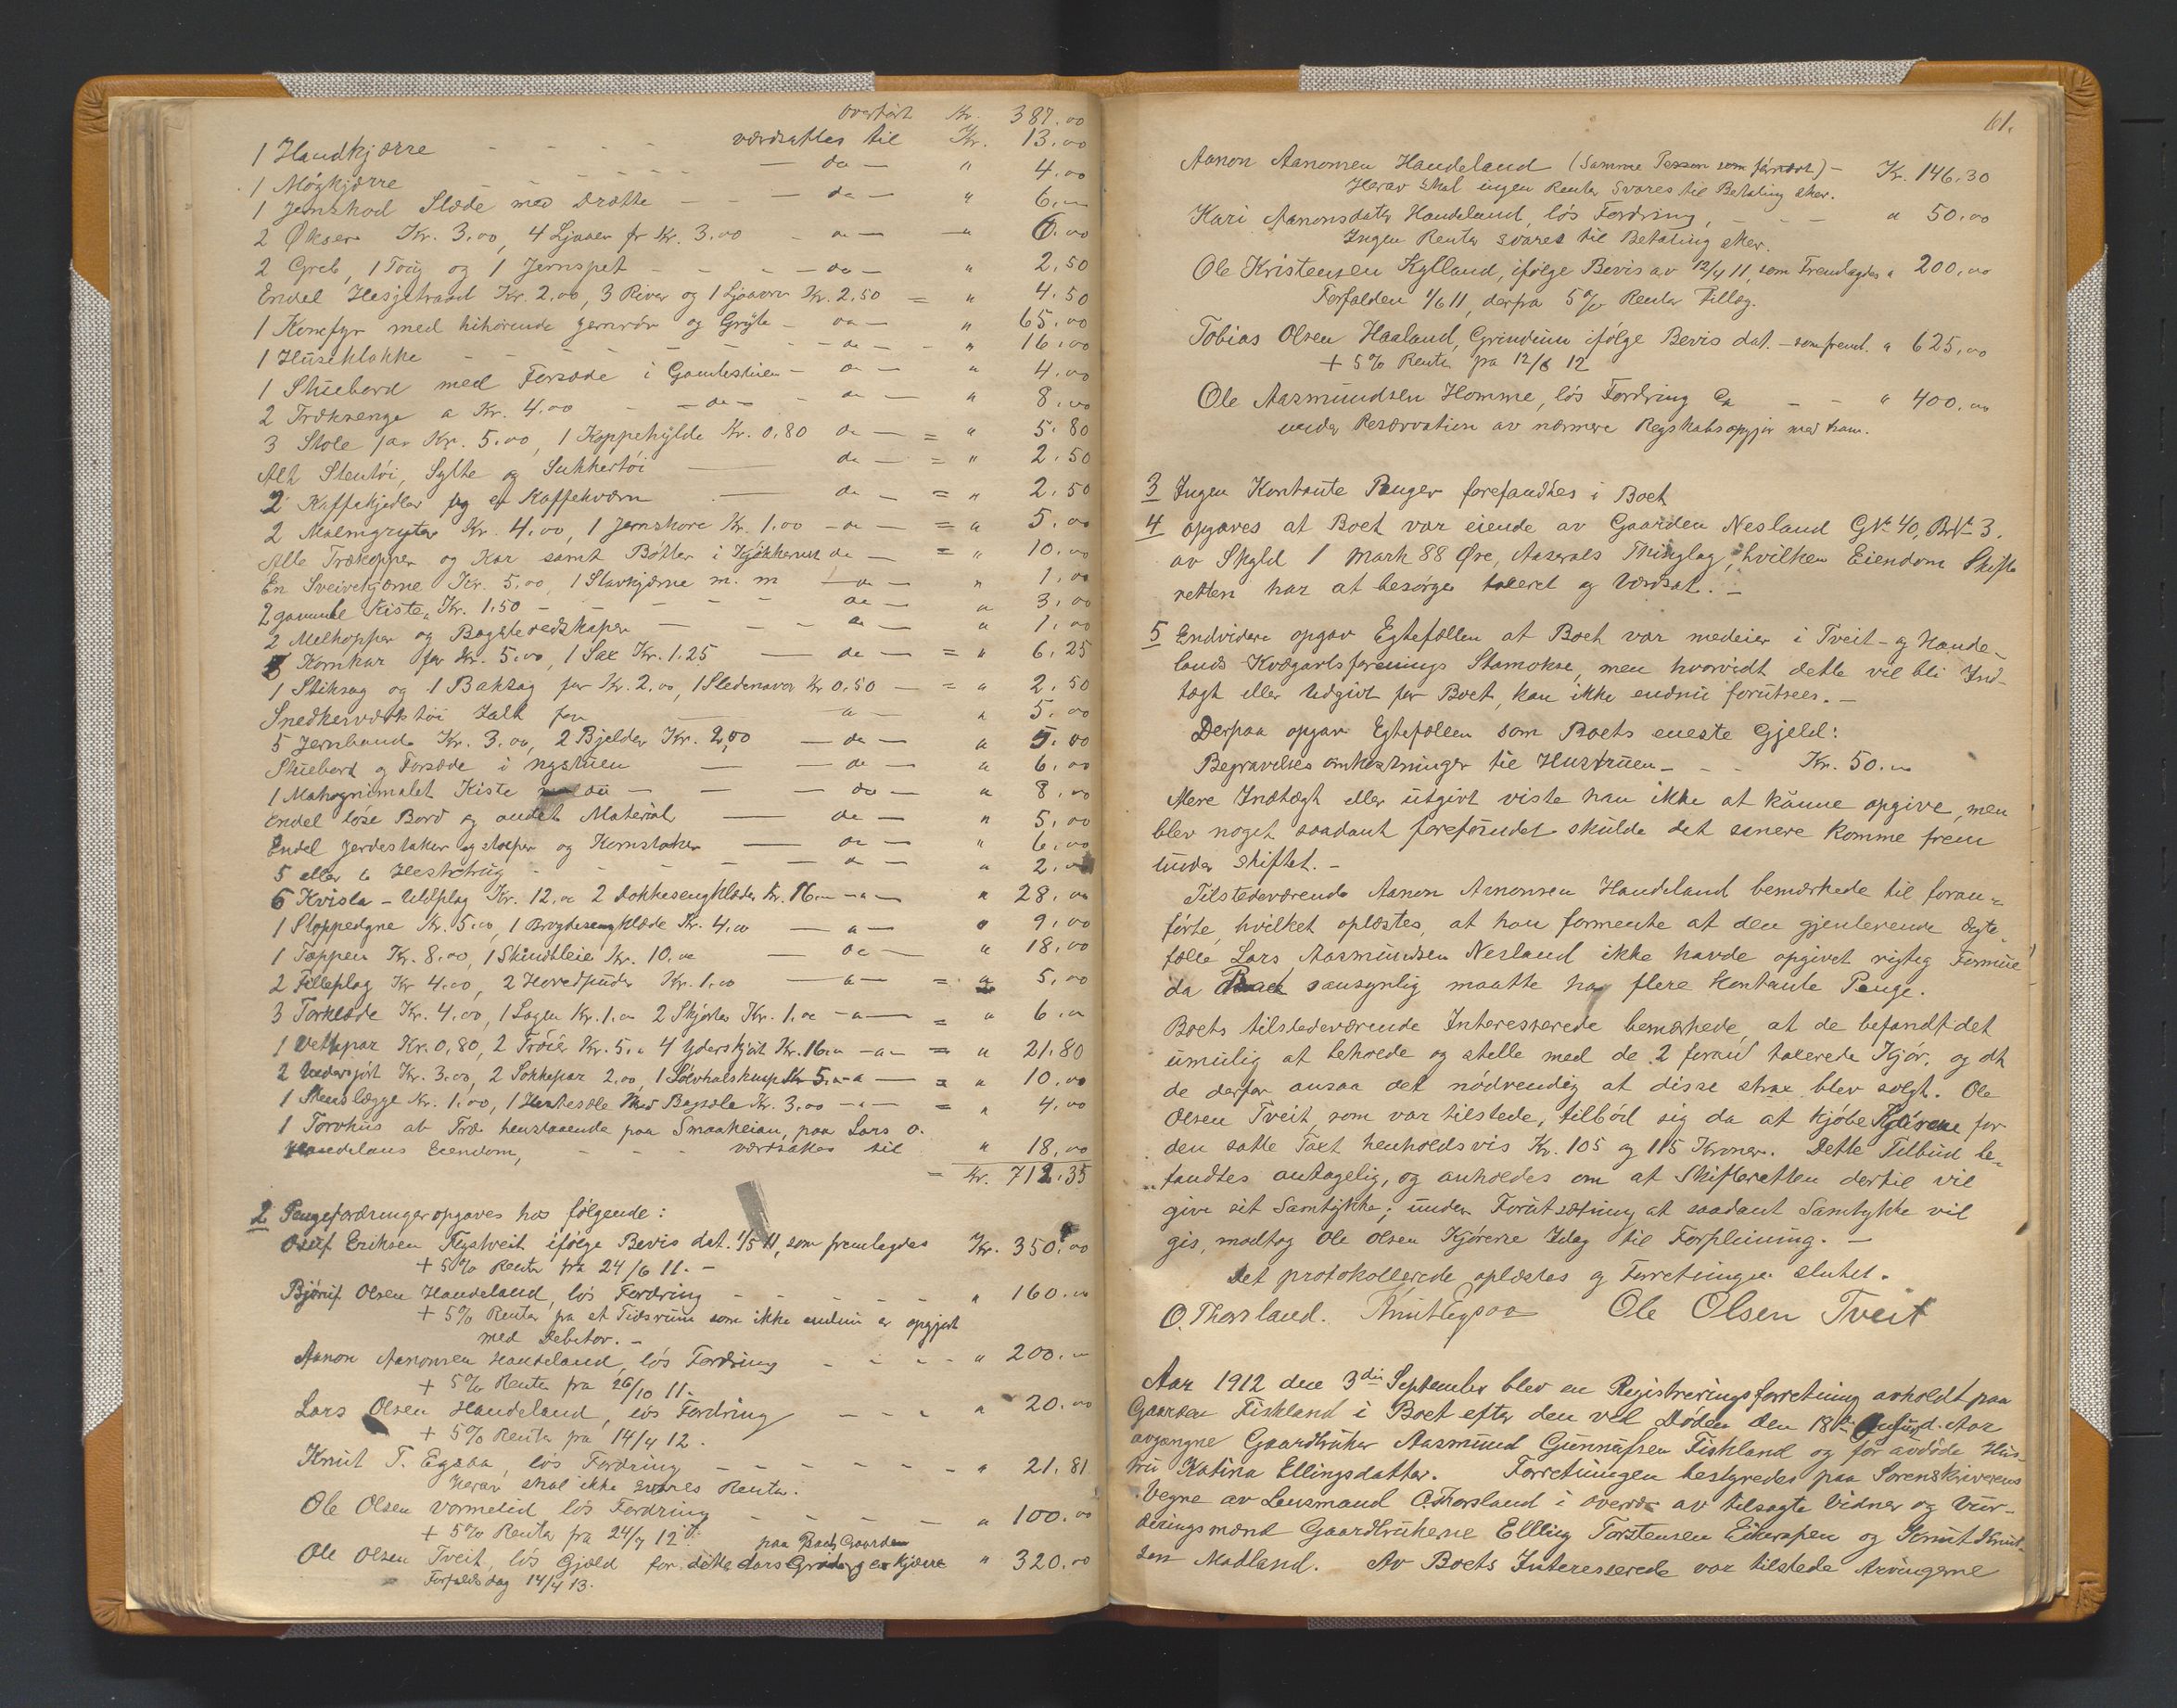 overført Kr. 387.00
1 Handkjærre - - - - værdsattes til Kr. 13.00
1 Møgkjærre - - - - - do - " 4.00
1 Jernskod Slæde med Drætte - - - do - " 6.00
2 Økser Kr. 3.00, 4 Ljaaer for Kr. 3.00 - " - " 6.00
2 Greb, 1 Torig og 1 Jernspet - - - do - " 2.50
Endel Hesjetraad Kr. 2.00, 3 River og 1 Ljaaorv Kr. 2.50 = " 4.50
1 Komfyr med hihørende Jernrør og Gryte - do - " 65.00
1 Huseklokke - - - - - do - " 16.00
1 Stuebord med Forsæde i Gamlestuen - do - " 4.00
2 Træksenge a Kr. 4.00 - do - - do - " 8.00
3 Stole for Kr. 5.00, 1 Koppehylde Kr. 0.80 do - = " 5.80
Alt Stentøi, Sylte og Sukkertøi - do - = " 2.50
2 Kaffekjedler og en Kaffekværn - do - = " 2.50
2 Malmgryter Kr. 4.00, 1 Jernskore Kr. 1.00 - do - = " 5.00
Alle Trækopper og Kar samt Bøtter i Kjøkkenet do - = " 10.00
En Sveivekjærne Kr. 5.00, 1 Stavkjærne m. m - do - " 1.00
2 gammel Kiste, Kr. 1.50 - - - - do - " 3.00
2 Melkopper og Bagsteredskaper - - - do - " 1.00
Kornkar for Kr. 5.00, 1 Sæl Kr. 1.25 - do - = " 6.25
1 Stiksag og 1 Baksag for Kr. 2.00, 1 Sledenaver Kr 0.50 - = " 2.50
Snedkerværktøi Ialt for - " - " 5.00
5 Jernbaand Kr. 3.00, 2 Bjelder Kr. 2,00 - do - " 5.00
Stuebord og Forsæde i nystuen - - do - " 6.00
1 Mahognimalet Kiste - - do - " 8.00
Endel løse Bord og andet Material - do - " 5.00
Endel Jerdestaker og stolper og Kornstaker - do - " 6.00
5 eller 6 Hestetrug - - - - " - " 2.00
6 Kvisla - Uldplag Kr. 12.00 2 Dokkesengklæder Kr. 16.00 - " - " 28.00
1 Stoppedyne Kr. 5.00, 1 Brogdesengklæde Kr. 4.00 - " - " 9.00
1 Tæppen Kr. 8.00, 1 Skindfleie Kr. 10.00 - do - " 18.00
2 Filleplag Kr 4.00, 2 Hovedpuder Kr. 1.00 - " - = " 5.00
3 Tørklæde Kr. 4.00, 1 Lagen Kr. 1.00 2 Skjorter Kr. 1.00 - " - = " 6.00
1 Vettepar Kr. 0,80, 2 Trøier Kr. 5.00 4 Yderskjørt Kr. 16.00 - " - = " 21.80
2 Underskjørt Kr. 3.00, 2 Sokkepar 2.00, 1 Sølvhalsknap Kr 5.00 - " - = " 10.00
1 Stenslægge Kr. 1.00, 1 Hestesæle med Bagsæle Kr. 3.00 - " - = " 4.00
1 Torvhus at Træ henstaaende paa Smaaheian, paa Lars O.
Haandelans Eiendom, - - - værdsattes til " 18.00
= Kr. 712.35
2 Pengefordringer opgaves hos følgende:
Osuf Eriksen Flystveit ifølge Bevis dat. 1/5 11, som fremlagdes Kr. 350.00
+ 5% Rente fra 24/6 11. -
Bjørnf Olsen Haandeland, løs Fordring - - - - " 160.00
+ 5% Rente fra et Tidsrum som ikke endnu er opgjort
med Debitor. -
Aanon Aanonsen Haandeland, løs Fordring - - - " 200.00
+ 5% Rente fra 26/10 11.
Lars Olsen Haandeland, løs Fordring - - - " 20.00
+ 5% Rente fra 14/4 12.
Knut T. Egsaa, løs Fordring - - - - - - " 21.81
Herav skal ikke svares Renter.
Ole Olsen Vormelid, løs Fordring - - - - " 100.00
+ 5% Rente fra 24/4 12
paa Boets Gaarden
Ole Olsen Tveit, løs Gjæld for dette Aars Grøde og en kjærre " 320.00
Forfaldsdag 14/4 13.
61.
Aanon Aanonsen Haandeland (Samme Person som førnævt) - Kr. 146.30
Herav skal ingen Renter svares til Betaling sker.
Kari Aanonsdatter Haandeland, løs Fordring, - - - " 50.00
Ingen Renter svares til Betaling sker.
Ole Kristensen Kylland, ifølge Bevis av 12/4 11, som Fremlagdes " 200.00
Forfalden 1/6 11, derfra 5% Renter Tillæg.
Tobias Olsen Haaland, Grindum ifølge Bevis dat. - som freml. " 625.00
+ 5% Rente fra 12/6 12
Ole Aasmundsen Homme, løs Fordring Ca - - " 400.00
under Reservation av nærmere Regnskabsopgjør med ham.
3 Ingen Kontante Penger forefandtes i Boet
4 opgaves at Boet var eiende av Gaarden Nesland GNr 40, BNr 3.
av Skyld 1 Mark 88 Øre, Aaserals Thinglag, hvilken Eiendom Skifte
retten har at besørge taxeret og Værdsat. -
5 Endvidere opgav Egtefællen at Boet var medeier i Tveit - og Haande-
lands Kvægavlsforenings Stamokse, men hvorvidt dette vil bli Ind-
tægt eller Udgivt for Boet, kan ikke endnu forutsees. -
Derpaa opgav Egtefællen som Boets eneste Gjeld:
Begravelses omkostninger til Hustruen - - - Kr. 50.00
Mere Indtægt eller utgivt viste han ikke at kunne opgive, men
blev noget saadant forefundet skulde det senere komme frem
under skiftet. -
Tilstedeværende Aanon Aanonsen Haandeland bemærkede til foran-
førte, hvilket oplæstes, at han formente at den gjenlevende Egte-
fælle Lars Aasmundsen Nesland ikke havde opgivet rigtig Formue
da Boet sansynlig maatte ha flere Kontante Penge.
Boets tilstedeværende Interesserede bemærkede, at de befandt det
umulig at beholde og stelle med de 2 foran taxerede Kjør, og at
de derfor ansaa det nødvendig at disse strax blev solgt. Ole
Olsen Tveit, som var tilstede, tilbød sig da at kjøbe Kjørene for
den satte Taxt henholdsvis Kr. 105 og 115 Kroner. Dette Tilbud be-
fandtes antagelig, og anholdes om at Skifteretten dertil vil
give sit Samtykke; under Forutsætning at saadant Samtykke vil
gis, modtog Ole Olsen Kjørene Idag til Forpleining. -
Det protokollerede oplæstes og Forretningen slutet.
O. Thorsland. Knut Egsaa Ole Olsen Tveit
Aar 1912 den 3die September blev en Registreringsforretning avholdt paa
Gaarden Fiskland i Boet efter den ved Døden den 18de August d. Aar
avgangne Gaardbruker Aasmund Gunnufsen Fiskland og før avdøde Hus-
tru Katina Ellingsdatter. Forretningen bestyredes paa Sorenskriverens
Vegne av Lensmand O. Thorsland i overvær av tilsagte Vidner og Vur-
deringsmænd Gaardbrukerne Ellling Torstensen Eikerapen og Knut Knut-
sen Madland. Av Boets Interesserede var tilstede Arvingerne